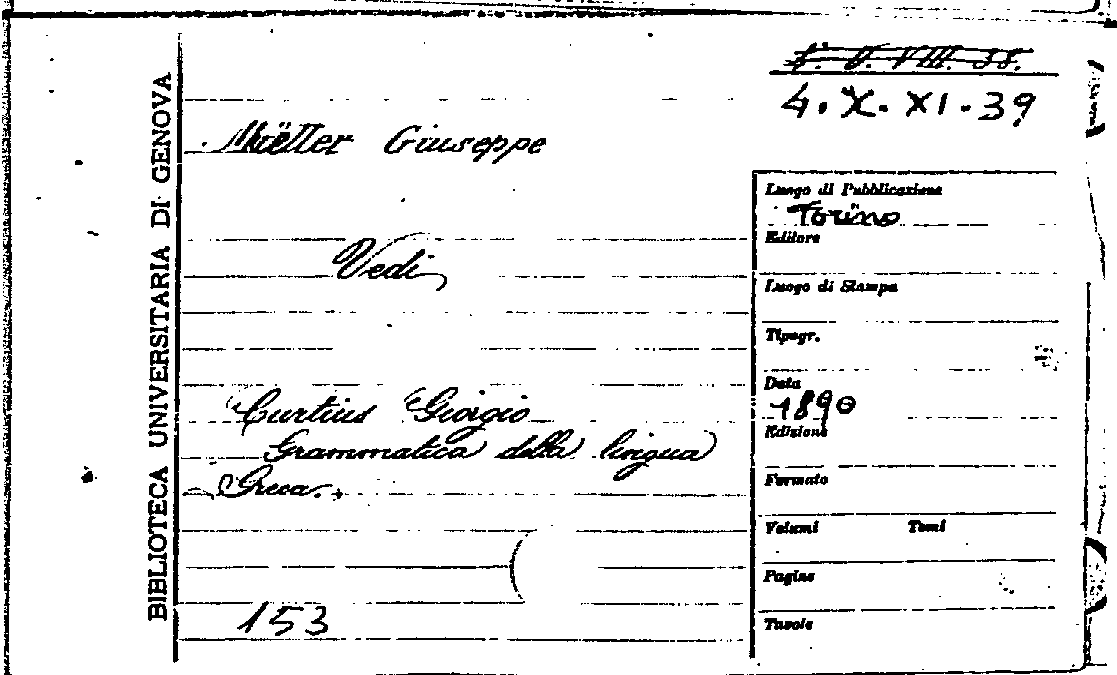 BIBLIOTECA UNIVERSITARIA DI GENOVA
4. X. XI. 39
Müller Giuseppe
Vedi
Curtius Giorgio
Grammatica della lingua
Greca.
153
Luogo di Pubblicazione
Torino
Editore
Luogo di Stampa
Tipogr.
Data
1890
Edizione
Formato
Volumi Tomi
Pagine
Tavole